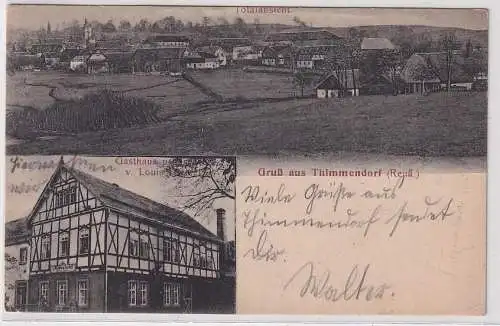 Totalansicht.
Gasthaus
v. Louis
Gruß aus Thimmendorf (Reuß.)
Hier
wir
Viele Grüße aus
Thimmendorf sendet
Dir.
Walter.